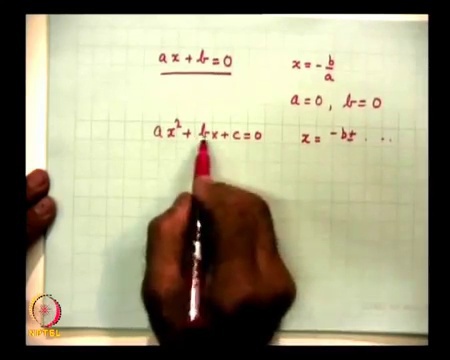 ax + b = 0
x = -b/a
a = 0, b = 0
ax² + bx + c = 0
x = -b± . ..
NPTEL